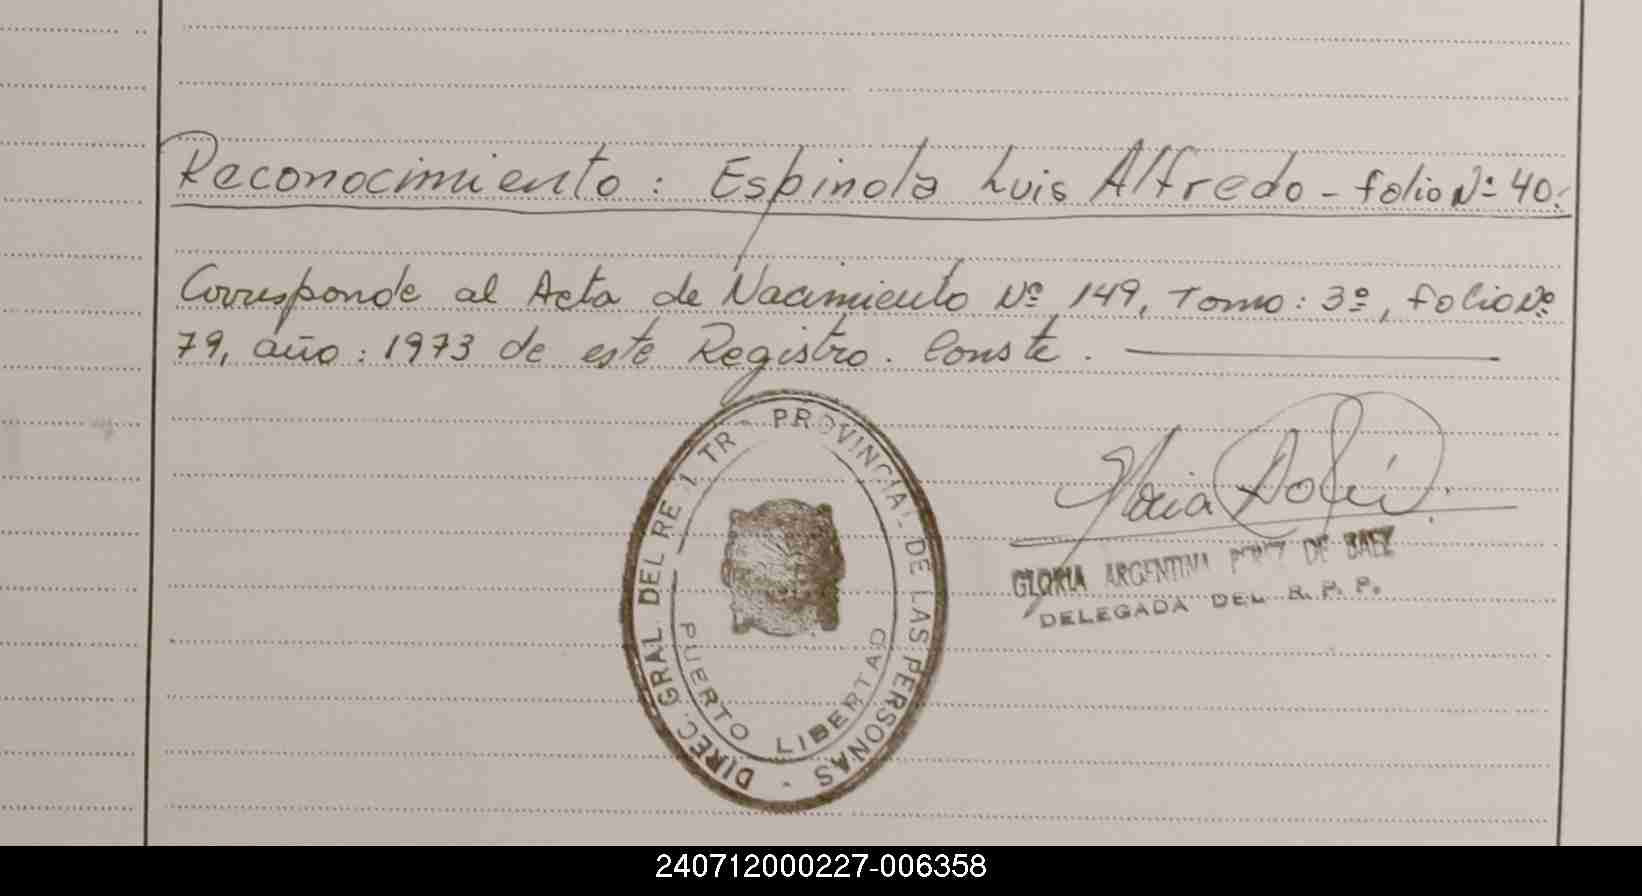 Reconocimiento : Espinola Luis Alfredo - folio Nº 40.
Corresponde al Acta de Nacimiento Nº 149, Tomo : 3º, folio Nº
79, año : 1973 de este Registro. Conste.
DIREC. GRAL DEL RE I TR - PROVINCIAL DE LAS PERSONAS -
PUERTO LIBERTAD
GLORIA ARGENTINA DE BAEZ
DELEGADA DEL R. P. P.
240712000227-006358